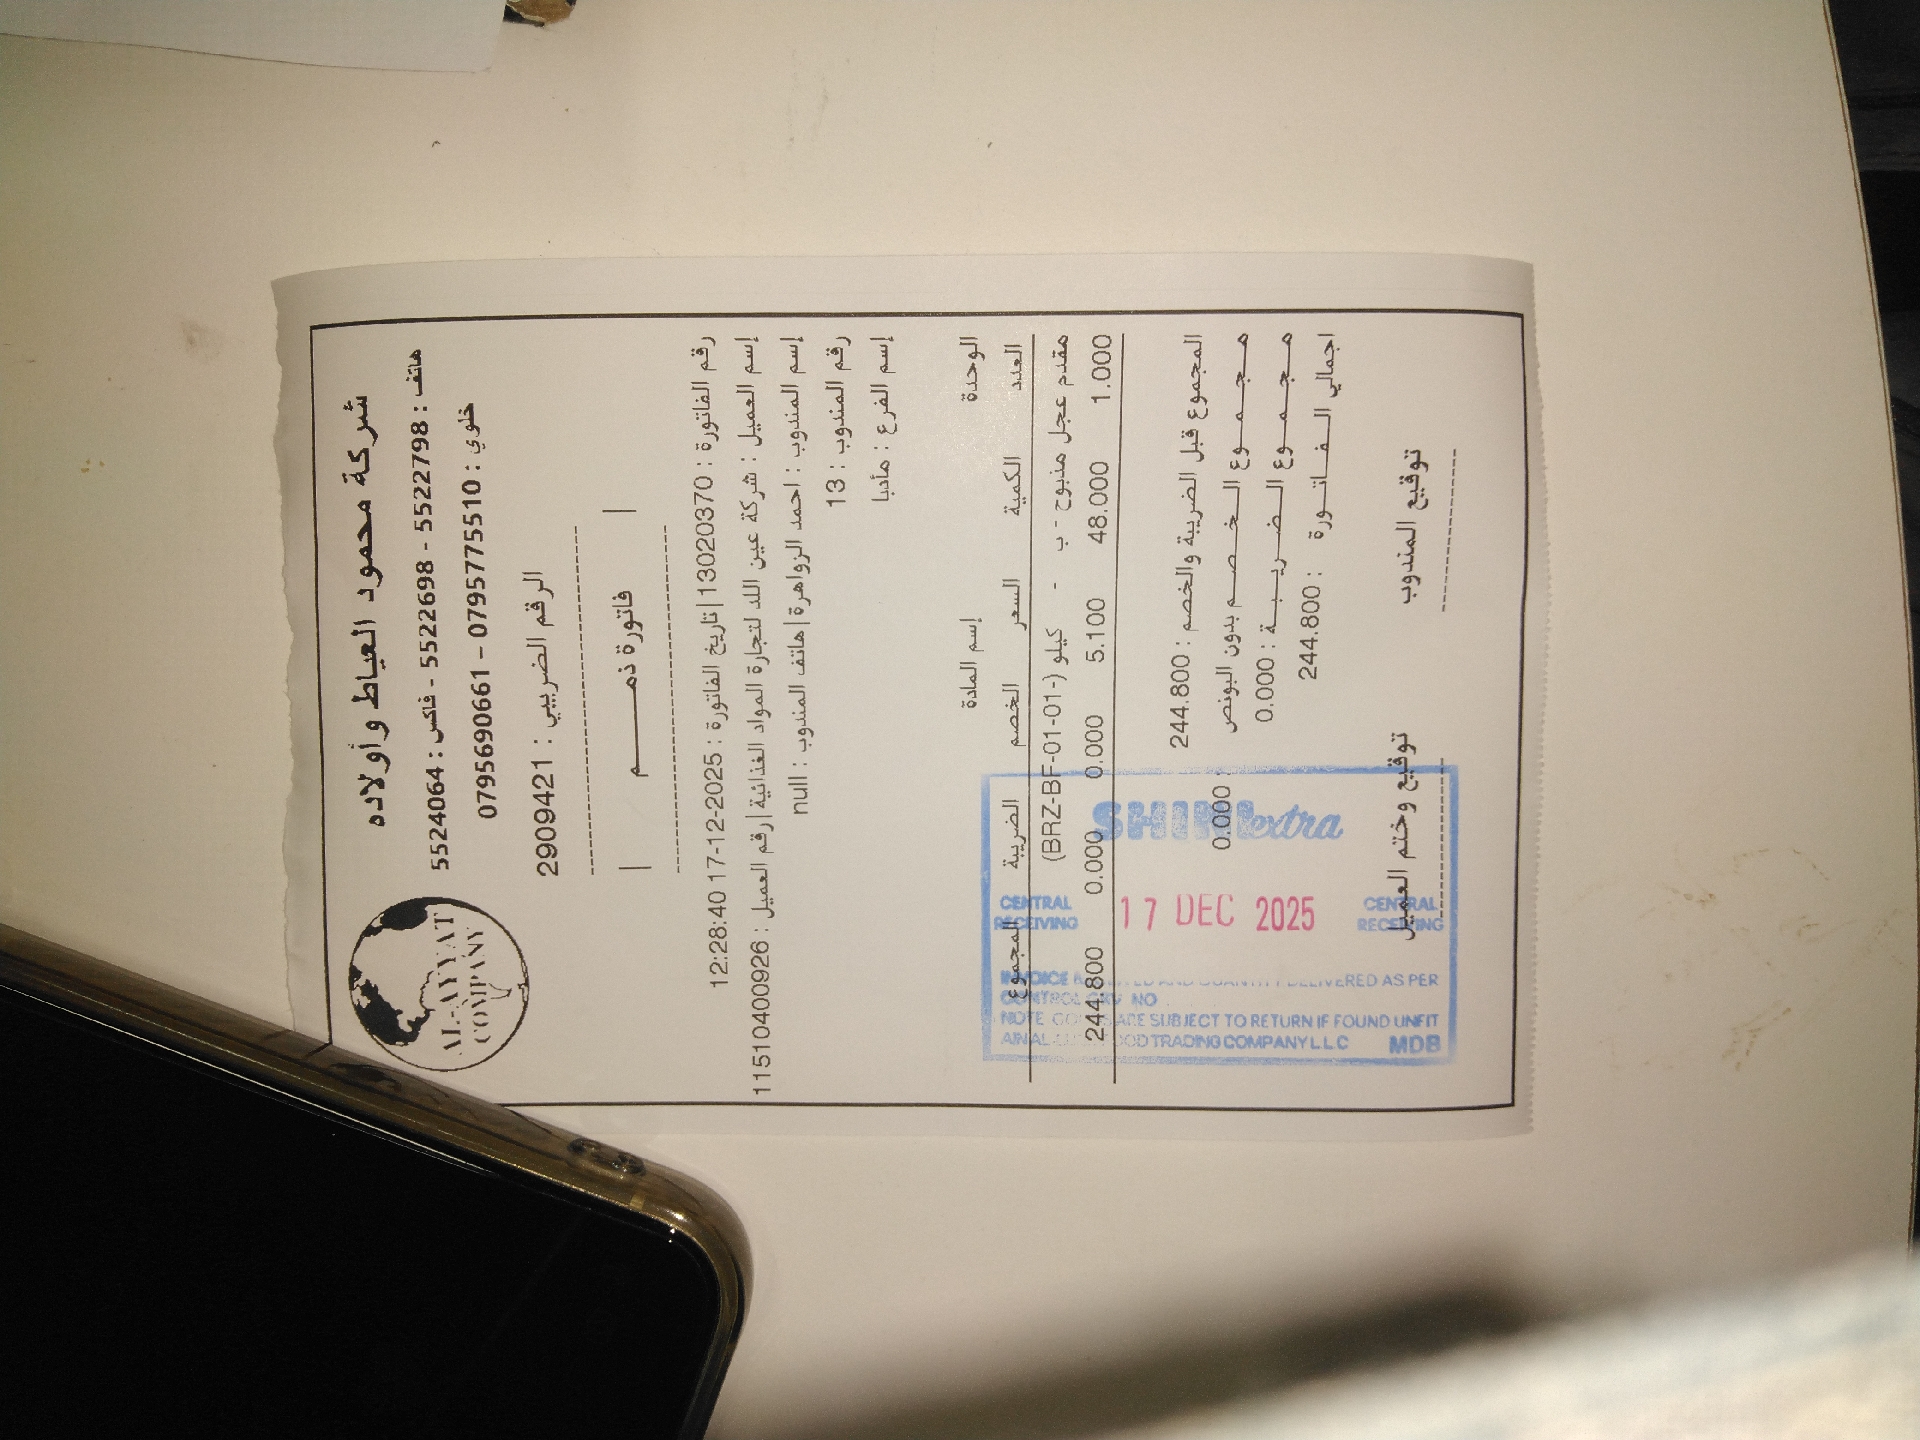 شركة محمود العياط وأولاده
هاتف : 5522798 - 5522698 - فاكس : 5524064
خلوي : 0795775510 - 0795690661
AL-AYYAT
COMPANY
الرقم الضريبي : 2909421
| فاتورة ذمـــــم |
رقم الفاتورة : 13020370 | تاريخ الفاتورة : 2025-12-17 12:28:40
إسم العميل : شركة عين اللد لتجارة المواد الغذائية | رقم العميل : 11510400926
إسم المندوب : احمد الزواهرة | هاتف المندوب : null
رقم المندوب : 13
إسم الفرع : مأدبا
الوحدة إسم المادة
العدد الكمية السعر الخصم الضريبة المجموع
مقدم عجل منبوح - ب - كيلو (-BRZ-BF-01-01)
1.000 48.000 5.100 0.000 0.000 244.800
المجموع قبل الضريبة والخصم : 244.800
مـجـمـــوع الـخـــصـــم بدون البونص : 0.000
مـجـمـــوع الـضـريـبـــة : 0.000
اجمالي الـــفـــاتـــورة : 244.800
توقيع المندوب توقيع وختم العميل
SHINI extra
CENTRAL RECEIVING
17 DEC 2025
CENTRAL RECEIVING
INVOICE AND QUANTITY DELIVERED AS PER
CONTROL GRV NO
NOTE GOODS ARE SUBJECT TO RETURN IF FOUND UNFIT
AIN AL FOOD TRADING COMPANY L.L.C MDB